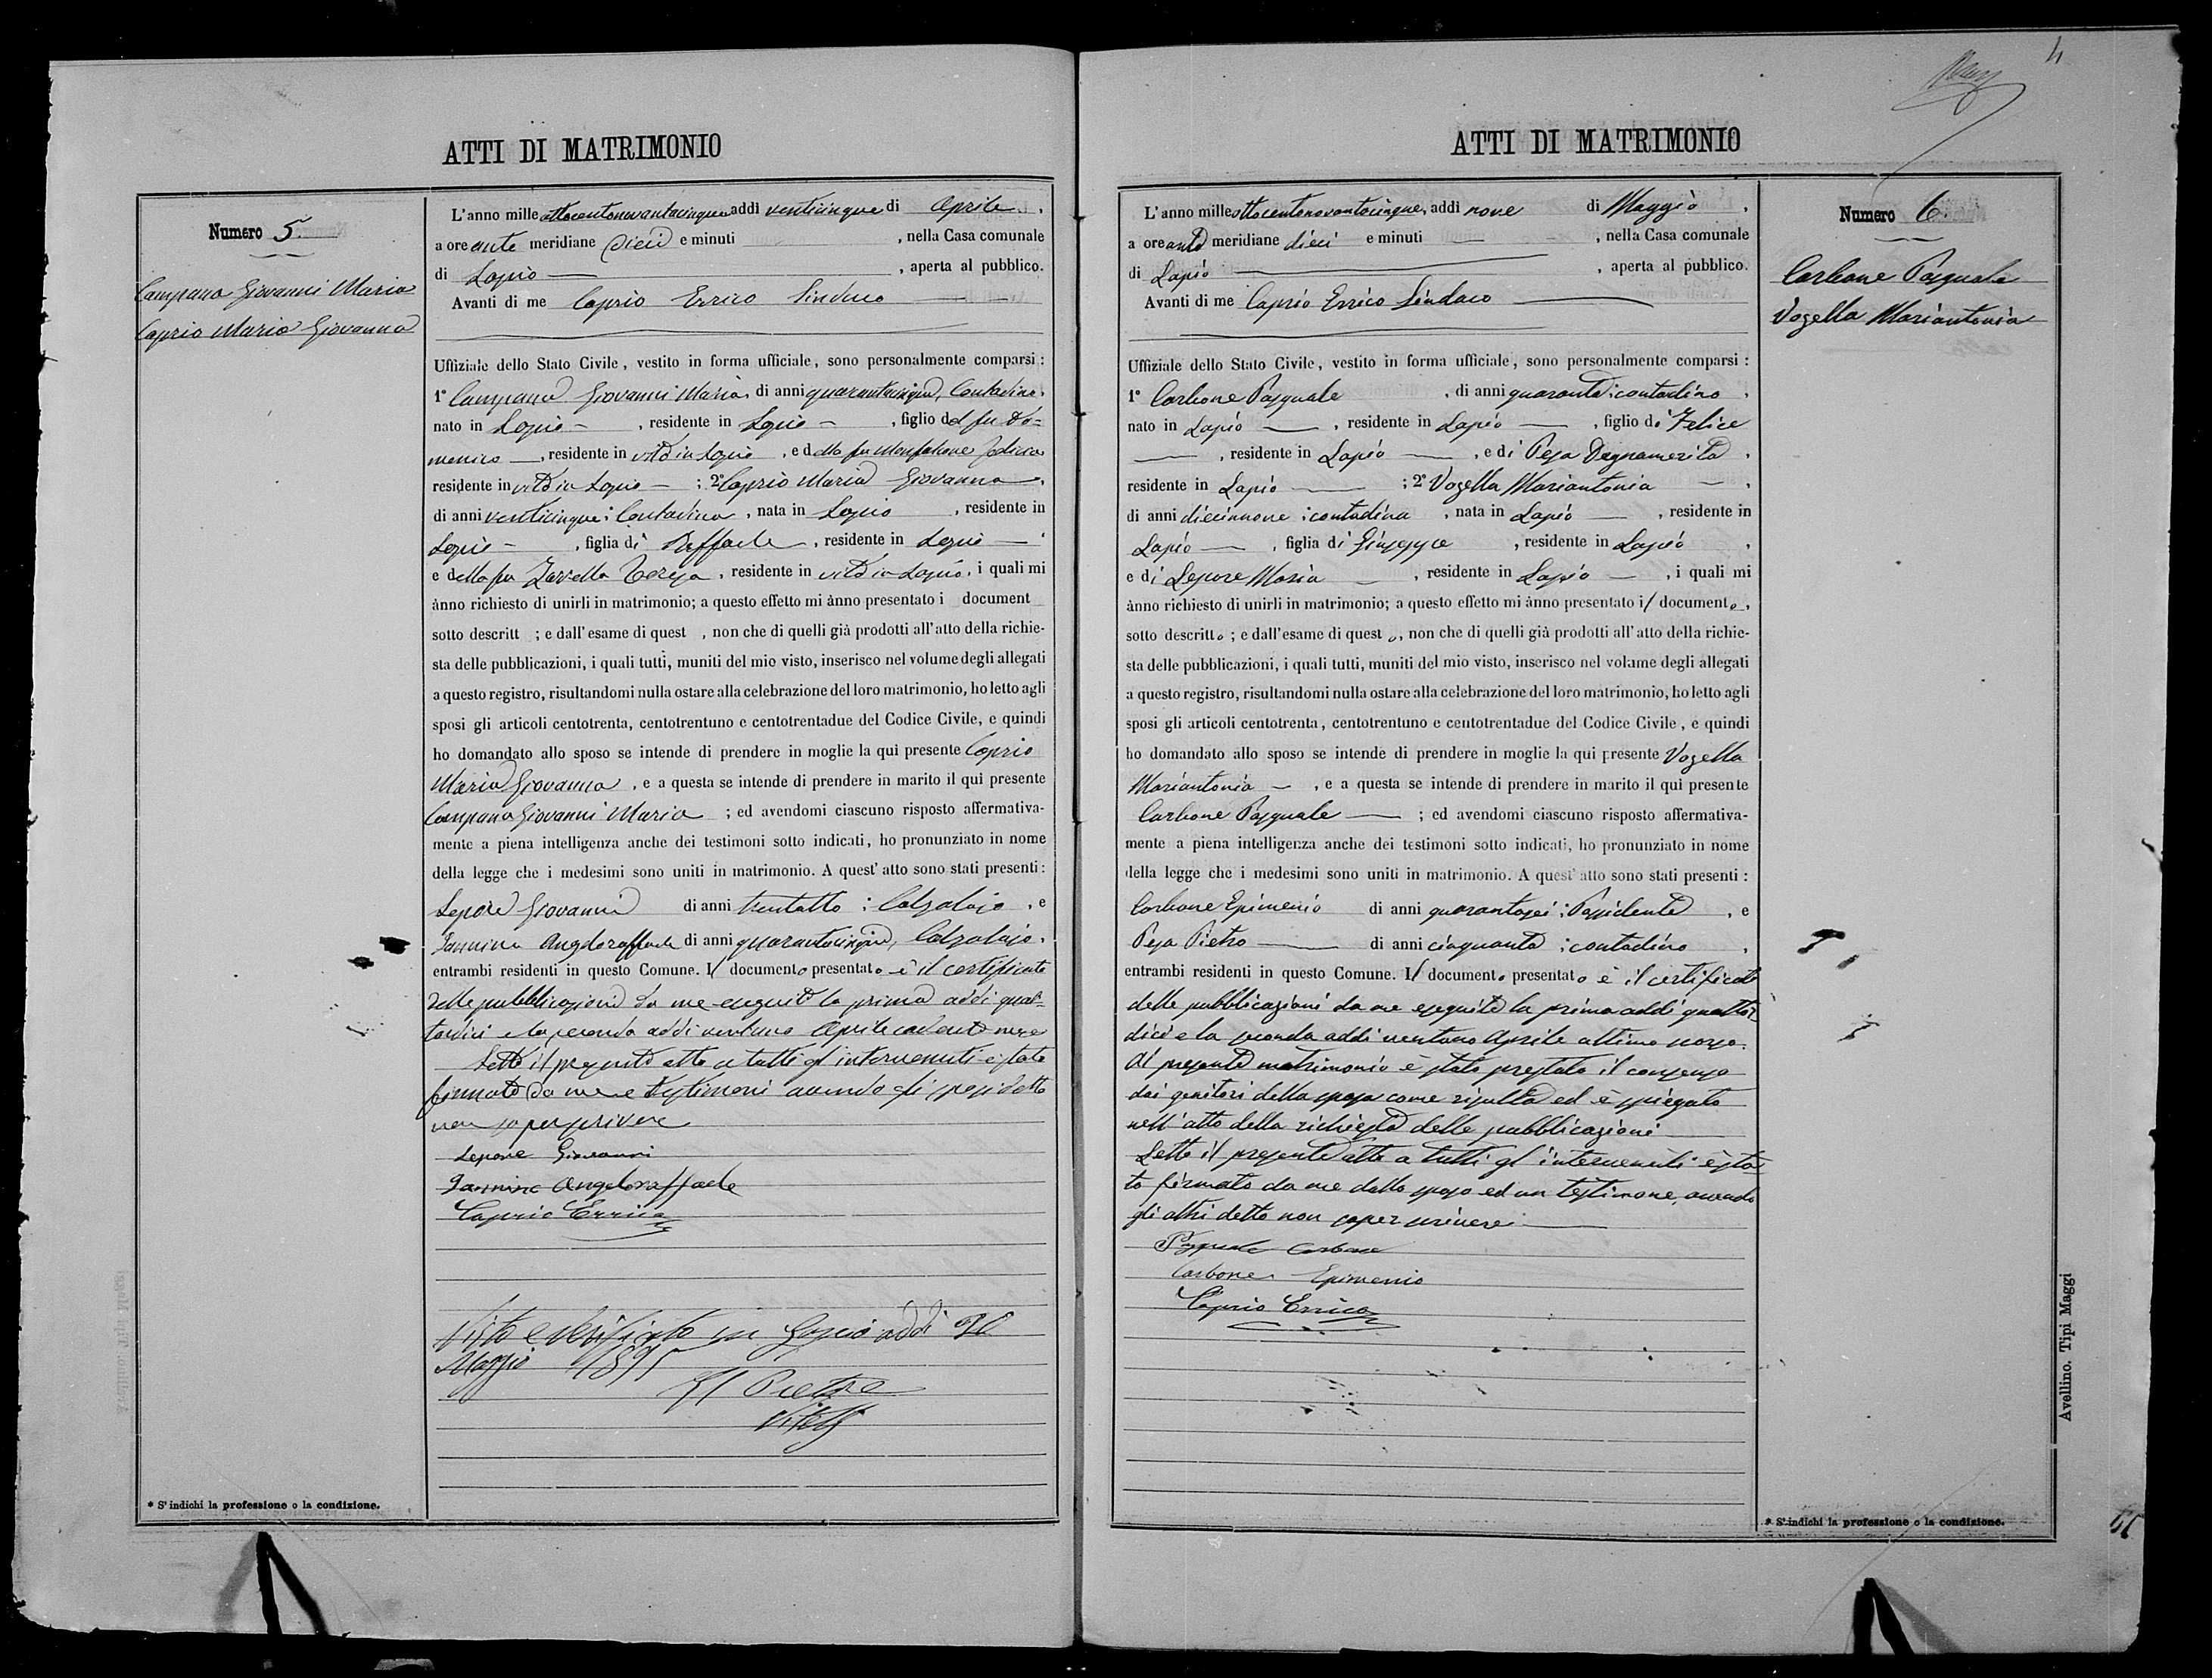 ATTI DI MATRIMONIO
Numero 5.
Campana Giovanni Maria
Caprio Maria Giovanna
L'anno mille ottocentonovantacinque addì venticinque di Aprile,
a ore ante meridiane dieci e minuti , nella Casa comunale
di Lapio , aperta al pubblico.
Avanti di me Caprio Errico Sindaco
Uffiziale dello Stato Civile, vestito in forma ufficiale, sono personalmente comparsi:
1° Campana Giovanni Maria, di anni quarantacinque, Contadino,
nato in Lapio , residente in Lapio , figlio del fu Do=
menico , residente in vita in Lapio , e della fu
residente in vita in Lapio ; 2° Caprio Maria Giovanna,
di anni venticinque; Contadina, nata in Lapio , residente in
Lapio , figlia di Raffaele , residente in Lapio
e della fu Zarrella Teresa, residente in vita in Lapio, i quali mi
ànno richiesto di unirli in matrimonio; a questo effetto mi ànno presentato i document
sotto descritt ; e dall'esame di quest , non che di quelli già prodotti all'atto della richie-
sta delle pubblicazioni, i quali tutti, muniti del mio visto, inserisco nel volume degli allegati
a questo registro, risultandomi nulla ostare alla celebrazione del loro matrimonio, ho letto agli
sposi gli articoli centotrenta, centotrentuno e centotrentadue del Codice Civile, e quindi
ho domandato allo sposo se intende di prendere in moglie la qui presente Caprio
Maria Giovanna , e a questa se intende di prendere in marito il qui presente
Campana Giovanni Maria ; ed avendomi ciascuno risposto affermativa-
mente a piena intelligenza anche dei testimoni sotto indicati, ho pronunziato in nome
della legge che i medesimi sono uniti in matrimonio. A quest'atto sono stati presenti:
Lepore Giovanni di anni trentotto; Calzolajo , e
Iannino Angeloraffaele di anni quarantacinque, Calzolajo,
entrambi residenti in questo Comune. Il documento presentato è il certificato
delle pubblicazioni da me eseguite la prima addì quat=
tordici e la seconda addì ventuno Aprile cadente mese
Letto il presente atto a tutti gl'intervenuti è stato
firmato da me e testimoni avendo gli sposi detto
non saper scrivere
Lepore Giovanni
Iannino Angeloraffaele
Caprio Errico
Visto e verificato in Lapio addì
Maggio 1895
Il Pretore
* S'indichi la professione o la condizione.
4
ATTI DI MATRIMONIO
Numero 6.
Carbone Pasquale
Vozella Mariantonia
L'anno mille ottocentonovantacinque, addì nove di Maggio ,
a ore ante meridiane dieci e minuti , nella Casa comunale
di Lapio , aperta al pubblico.
Avanti di me Caprio Errico Sindaco
Uffiziale dello Stato Civile, vestito in forma ufficiale, sono personalmente comparsi:
1° Carbone Pasquale , di anni quaranta; contadino ,
nato in Lapio , residente in Lapio , figlio di Felice
, residente in Lapio , e di Pesa Degnamerita ,
residente in Lapio ; 2° Vozella Mariantonia ,
di anni diecinnove; contadina , nata in Lapio , residente in
Lapio , figlia di Giuseppe , residente in Lapio ,
e di Lepore Maria , residente in Lapio , i quali mi
ànno richiesto di unirli in matrimonio; a questo effetto mi ànno presentato il documento,
sotto descritto; e dall'esame di questo, non che di quelli già prodotti all'atto della richie-
sta delle pubblicazioni, i quali tutti, muniti del mio visto, inserisco nel volume degli allegati
a questo registro, risultandomi nulla ostare alla celebrazione del loro matrimonio, ho letto agli
sposi gli articoli centotrenta, centotrentuno e centotrentadue del Codice Civile, e quindi
ho domandato allo sposo se intende di prendere in moglie la qui presente Vozella
Mariantonia , e a questa se intende di prendere in marito il qui presente
Carbone Pasquale ; ed avendomi ciascuno risposto affermativa-
mente a piena intelligenza anche dei testimoni sotto indicati, ho pronunziato in nome
della legge che i medesimi sono uniti in matrimonio. A quest'atto sono stati presenti:
Carbone Epimenio di anni quarantasei; Possidente , e
Pesa Pietro di anni cinquanta; contadino ,
entrambi residenti in questo Comune. Il documento presentato è il certificato
delle pubblicazioni da me eseguite la prima addì quattor
dici e la seconda addì ventuno Aprile ultimo scorso.
Al presente matrimonio è stato prestato il consenso
dai genitori della sposa come risulta ed è spiegato
nell'atto della richiesta delle pubblicazioni
Letto il presente atto a tutti gl'intervenuti è sta
to firmato da me dallo sposo ed un testimone, avendo
gli altri detto non saper scrivere
Pasquale Carbone
Carbone Epimenio
Caprio Errico
* S'indichi la professione o la condizione.
Avellino. Tipi Maggi